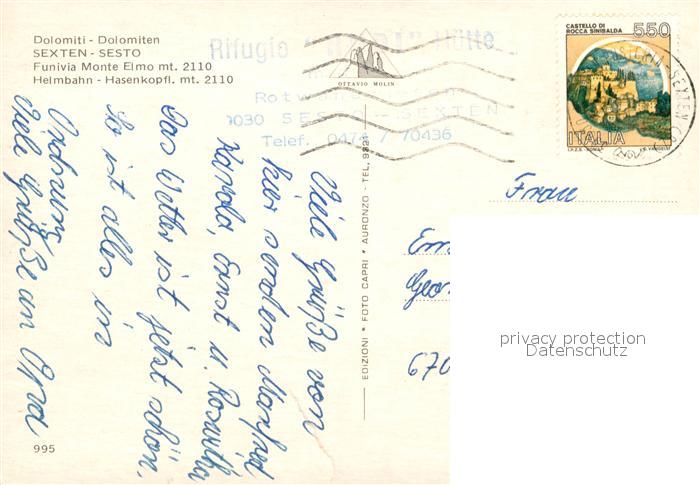 Dolomiti - Dolomiten
SEXTEN - SESTO
Funivia Monte Elmo mt. 2110
Helmbahn - Hasenkopfl. mt. 2110
Rifugio Hütte
OTTAVIO MOLIN
SEXTEN
Telef. 0474 / 70436
CASTELLO DI
ROCCA SINIBALDA
550
ITALIA
SEXTEN
Viele Grüße von
hier senden Manfred
Karola, Ernst u. Roswitha
Das Wetter ist jetzt schön,
So ist alles in
Ordnung
Viele Grüße an Opa
EDIZIONI * FOTO CAPRI * AURONZO - TEL.
Frau
Em
Geor
670
privacy protection
Datenschutz
995